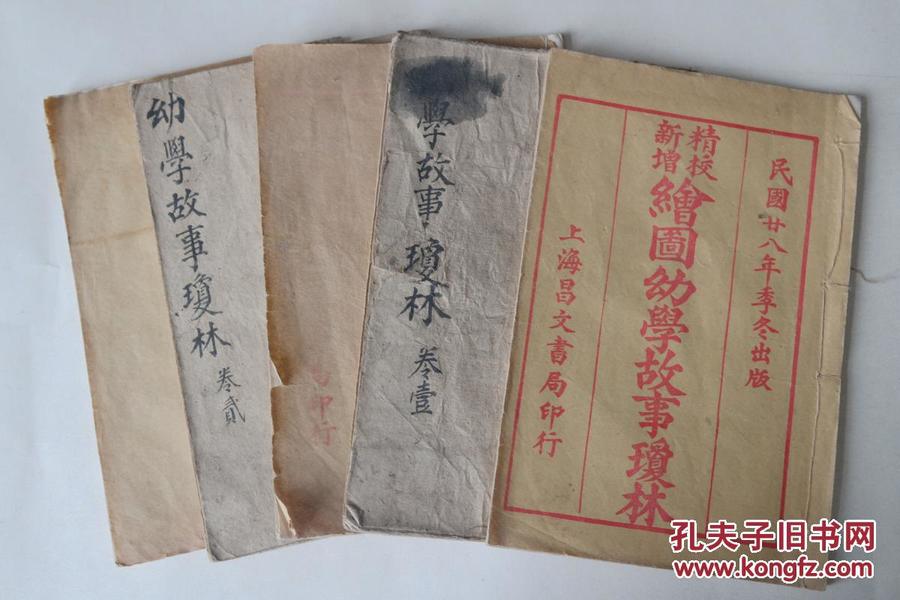 民國廿八年季冬出版
精校
新增
繪圖幼學故事瓊林
上海昌文書局印行
學故事瓊林
卷壹
印行
幼學故事瓊林
卷貳
孔夫子旧书网
www.kongfz.com